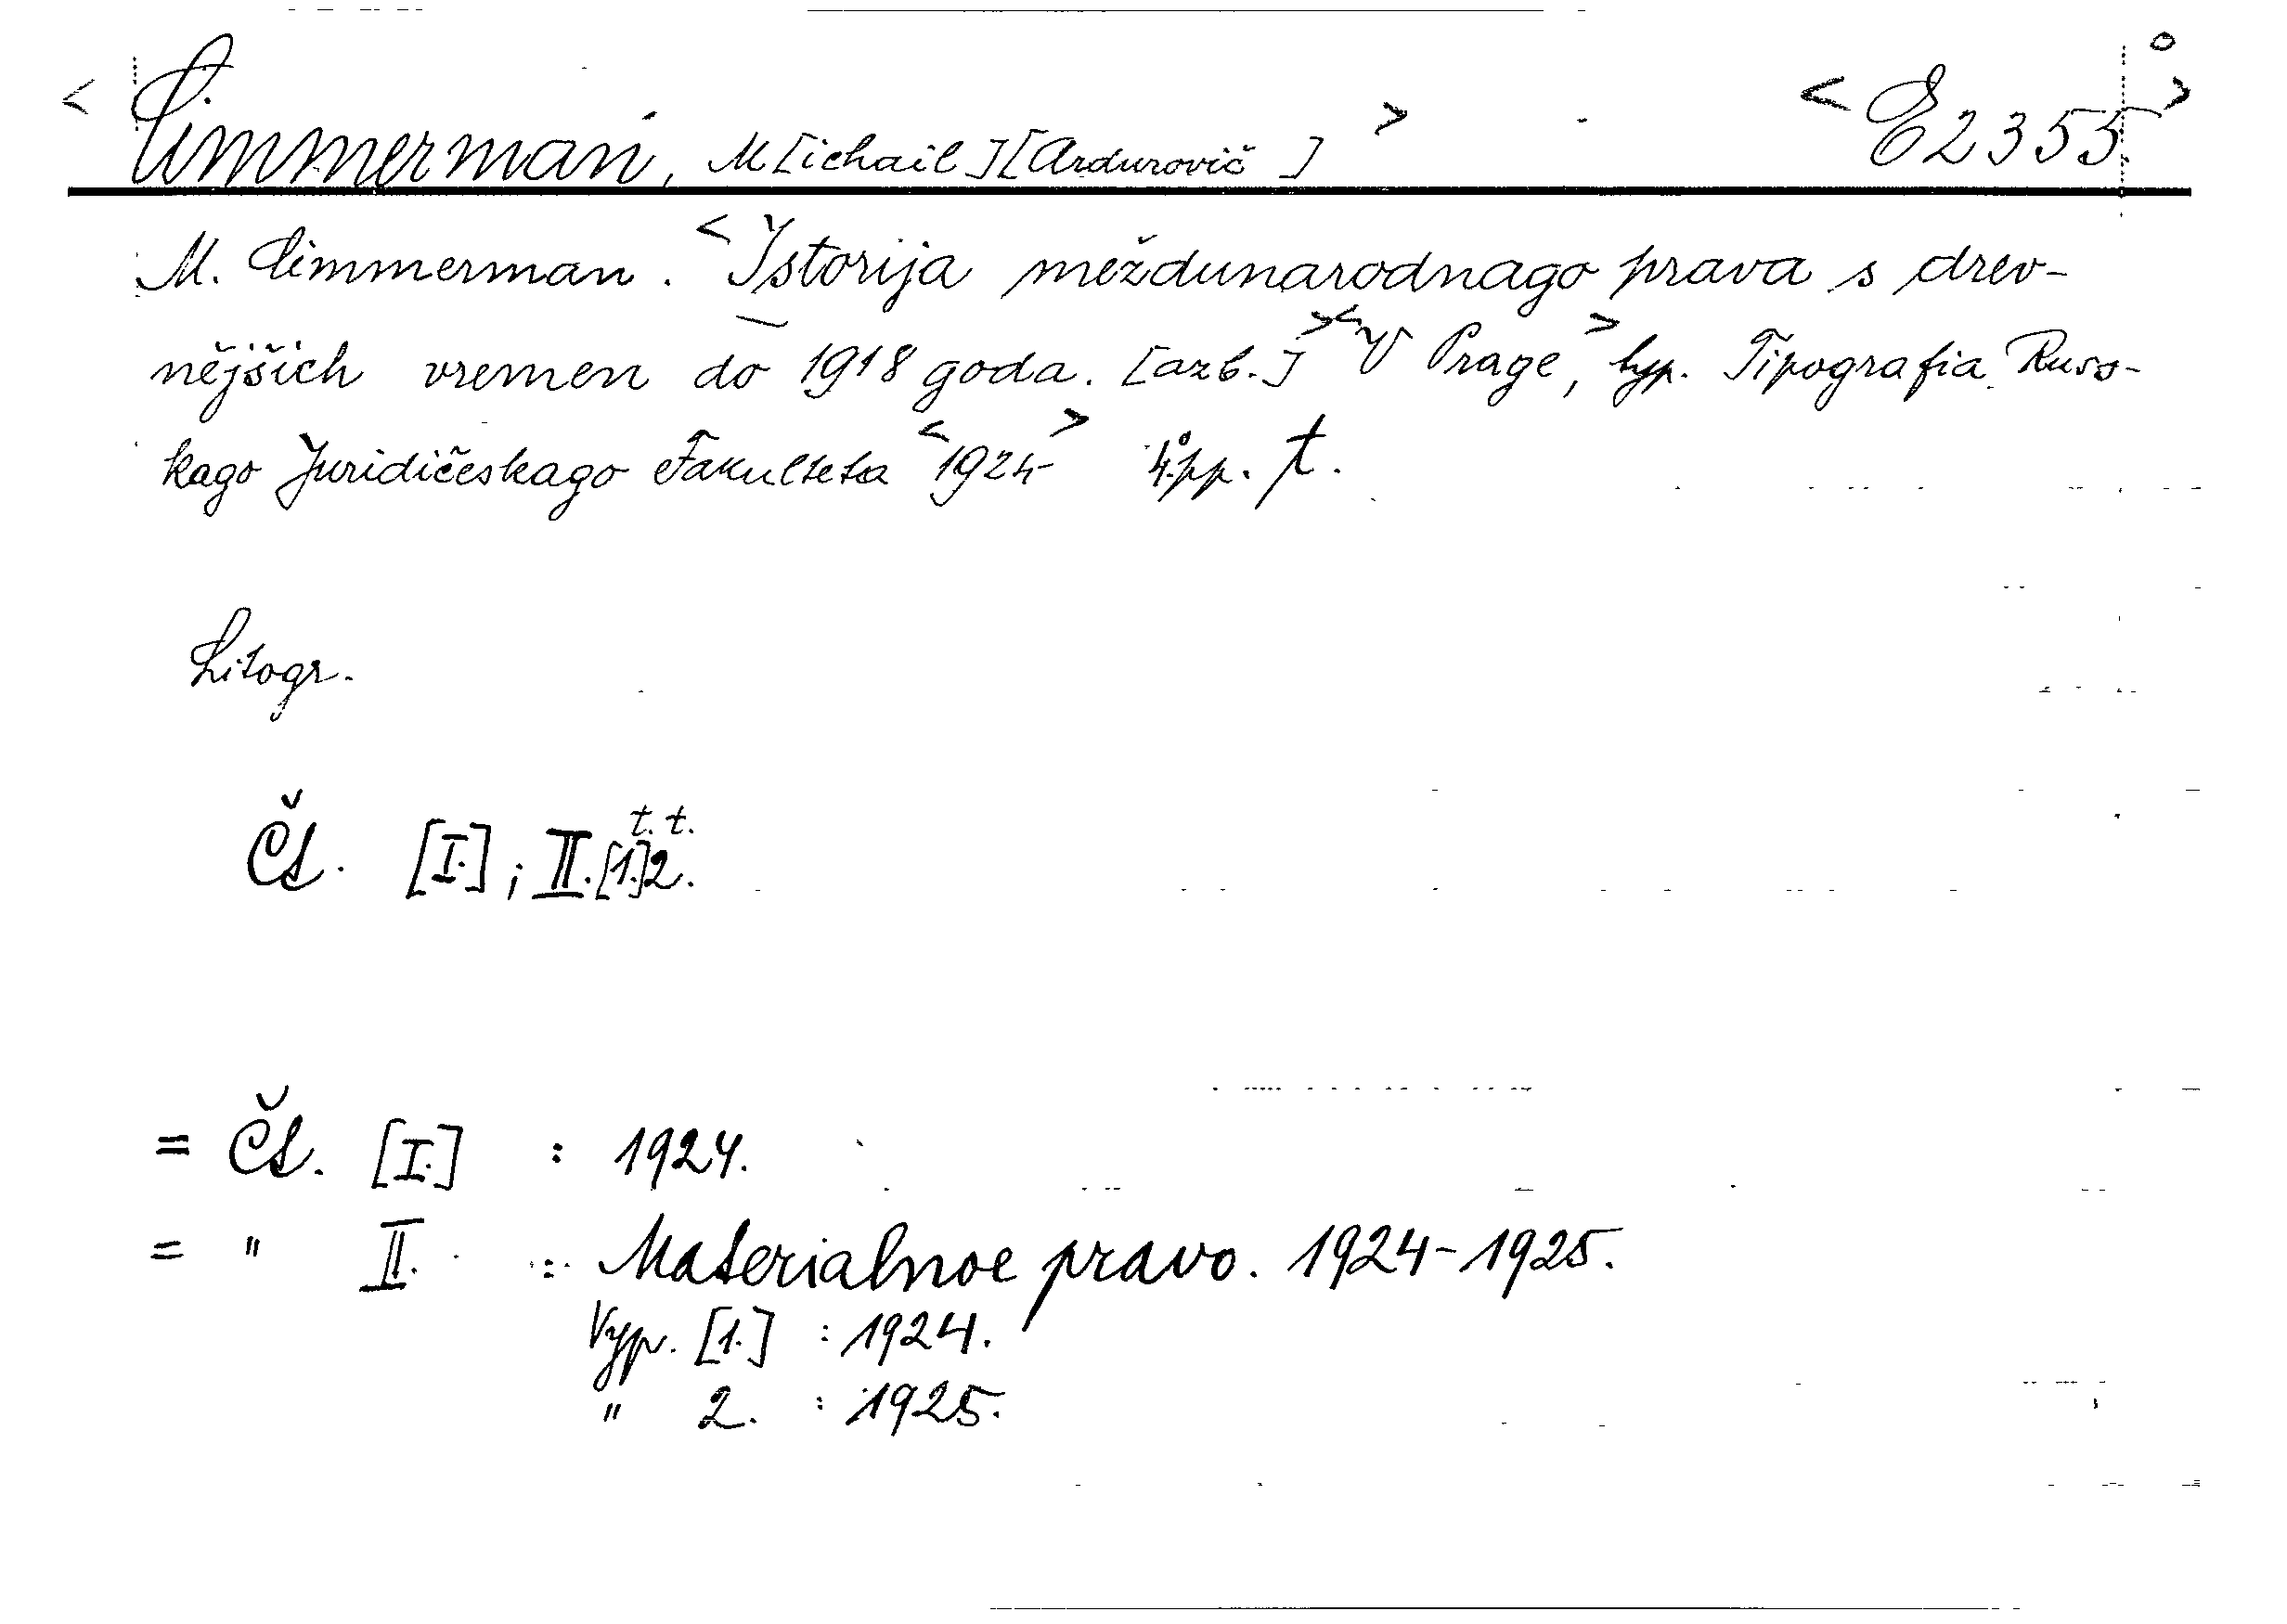 < Cimmerman, M[ichail] [Ardurovič ] > < E 2355 >
M. Cimmerman. < Istorija meždunarodnago prava s drev-
nějšich vremen do 1918 goda. [azb.] > < V Prage, > typ. Tipografia Russ-
kago Juridičeskago Fakulteta < 1924- > 4° pp. t.
Litogr.
Čs. [I.] ; II. [1.] 2. t. t.
= Čs. [I.] : 1924.
= " II. : Materialnoe pravo. 1924-1925.
Vyp. [1.] : 1924.
" 2. : 1925.